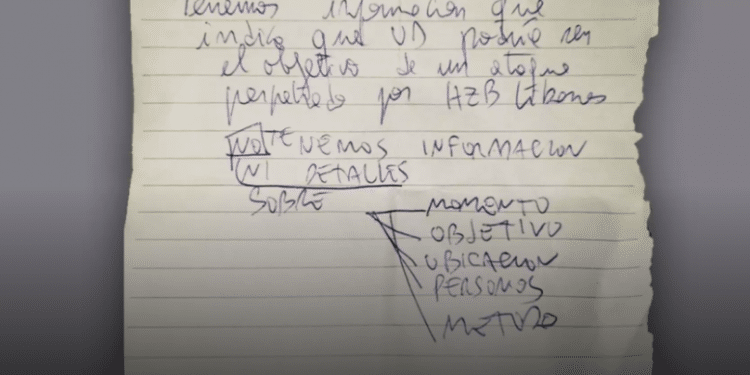 Tenemos información que
indica que UD podría ser
el objetivo de un ataque
perpetrado por HZB Libanes
NO TENEMOS INFORMACION
NI DETALLES
SOBRE
MOMENTO
OBJETIVO
UBICACION
PERSONAS
METODO